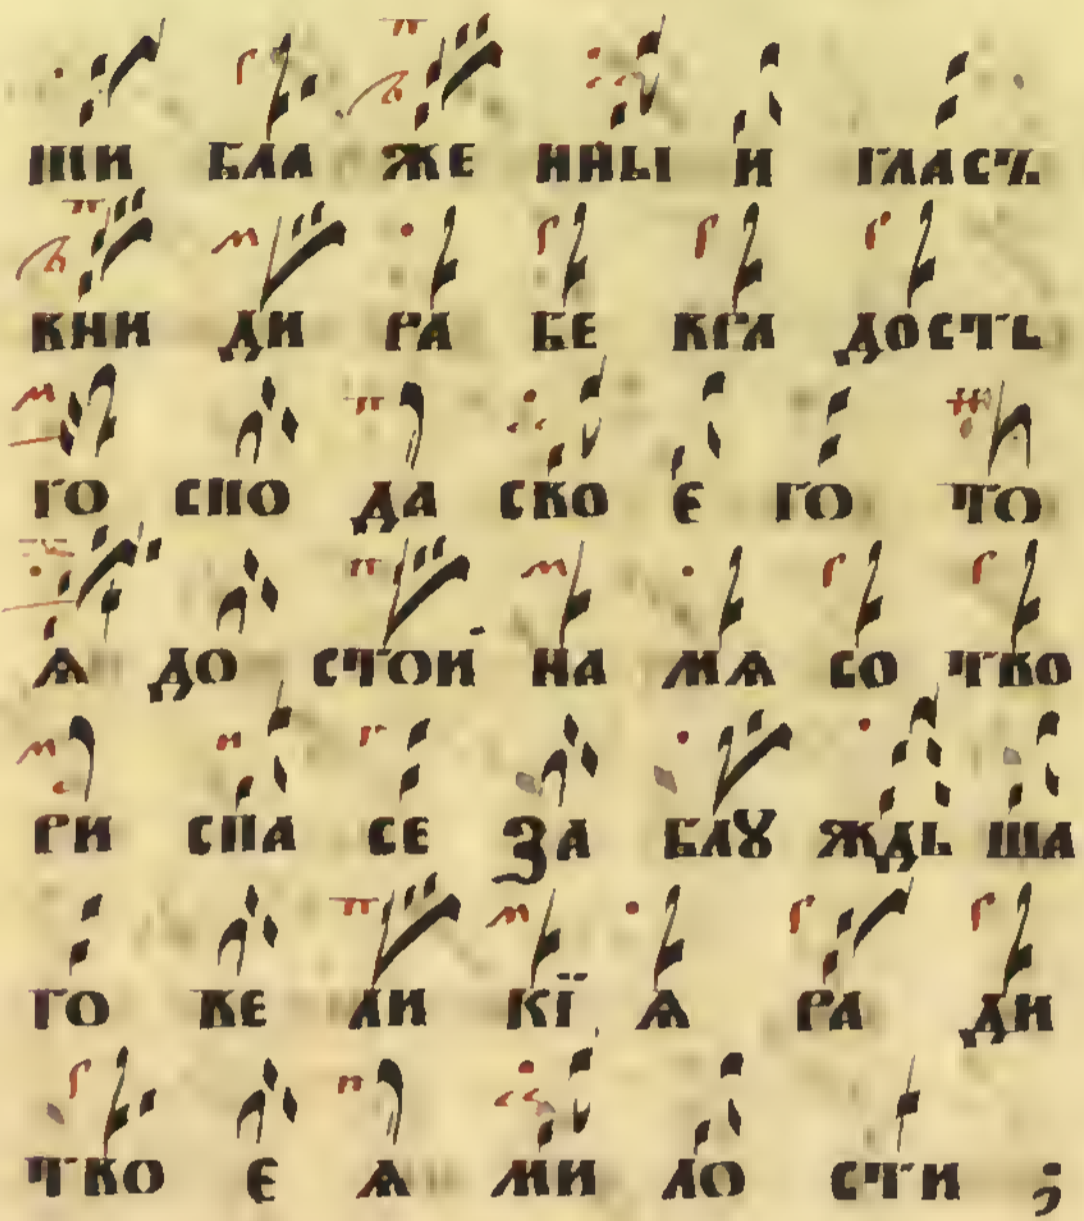 ШИ БЛА ЖЕ ННЫ И ГЛАСЪ
ВНИ ДИ РА БЕ ВРА ДОСТЬ
ГО СПО ДА СВО Е ГО ТО
Ѧ ДО СТОЙ НА МѦ СО ТВО
РИ СПА СЕ ЗА БЛꙊ ЖДЬ ША
ГО ВЕ ЛИ КЇ Ѧ РА ДИ
ТВО Е Ѧ МИ ЛО СТИ ;